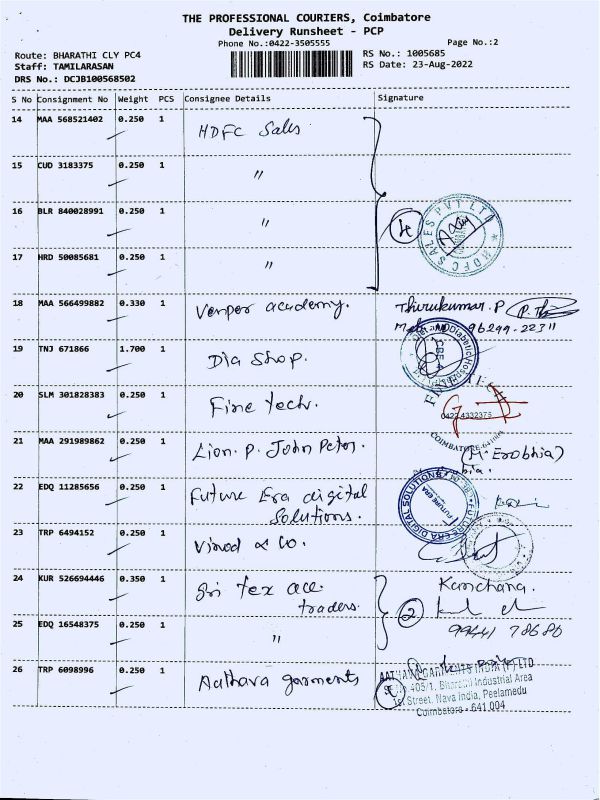 THE PROFESSIONAL COURIERS, Coimbatore
Delivery Runsheet - PCP
Phone No.:0422-3505555
Page No.:2
Route: BHARATHI CLY PC4
RS No.: 1005685
Staff: TAMILARASAN
RS Date: 23-Aug-2022
DRS No.: DCJB100568502
S No Consignment No Weight PCS Consignee Details Signature
14 MAA 568521402 0.250 1 HDFC Sales
15 CUD 3183375 0.250 1 "
16 BLR 840028991 0.250 1 "
4
HDFC SALES PVT LTD
17 HRD 50085681 0.250 1 "
18 MAA 566499882 0.330 1 Venper academy. Thirukumar. P
96299-22311
19 TNJ 671866 1.700 1 Dia Shop.
20 SLM 301828383 0.250 1 Fine Tech.
0422 4332375
COIMBATORE-641
21 MAA 291989862 0.250 1 Lion. P. John Peter. (M. Erobhia)
22 EDQ 11285656 0.250 1 Future Era digital
Solutions.
FUTURE ERA DIGITAL SOLUTIONS
FUTURE ERA
23 TRP 6494152 0.250 1 Vinod & co.
24 KUR 526694446 0.350 1 Sri Tex acc. Kanchana.
traders.
2
25 EDQ 16548375 0.250 1 " 99441 78680
26 TRP 6098996 0.250 1 Aathava garments
GARMENTS INDIA (P) LTD
405/1, Bharathi Industrial Area
1st Street, Nava India, Peelamedu
Coimbatore - 641 004